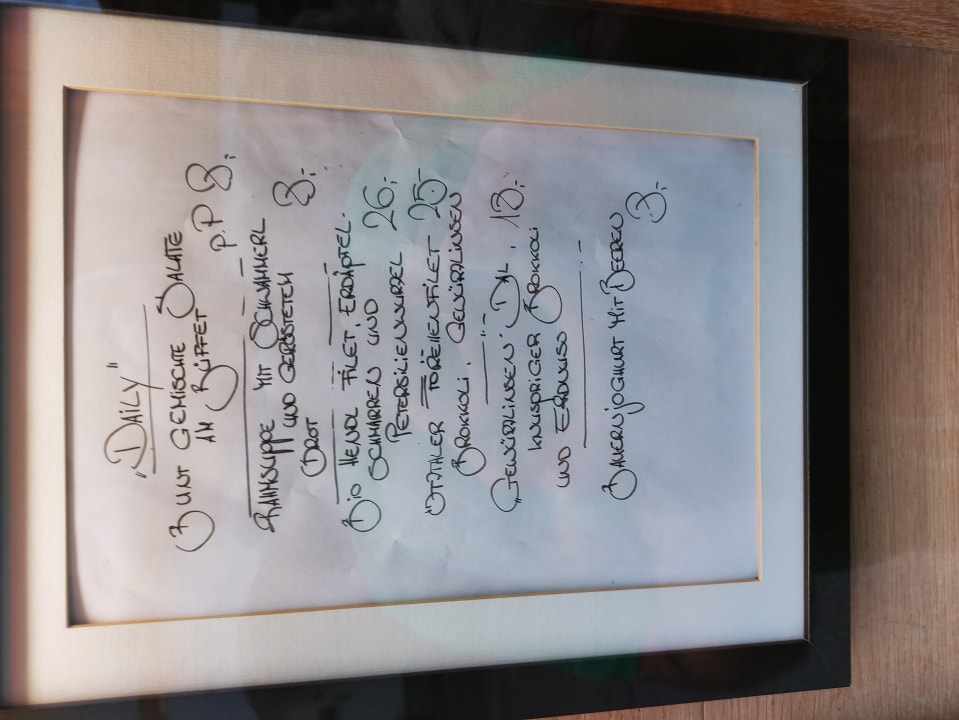 „DAILY"
BUNT GEMISCHTE SALATE
AM BÜFFET p.P 8,-
RAHMSUPPE MIT SCHWAMMERL
UND GERÖSTETEM 8,-
BROT
BIO HENDL FILET, ERDÄPFEL-
SCHMARREN UND 26,-
PETERSILIENWURZEL
ÖTZTALER FORELLENFILET 25-
BROKKOLI, GEWÜRZLINSEN
„GEWÜRZLINSEN" DAL, 18,-
KNUSPRIGER BROKKOLI
UND
BAUERNJOGHURT MIT BEEREN